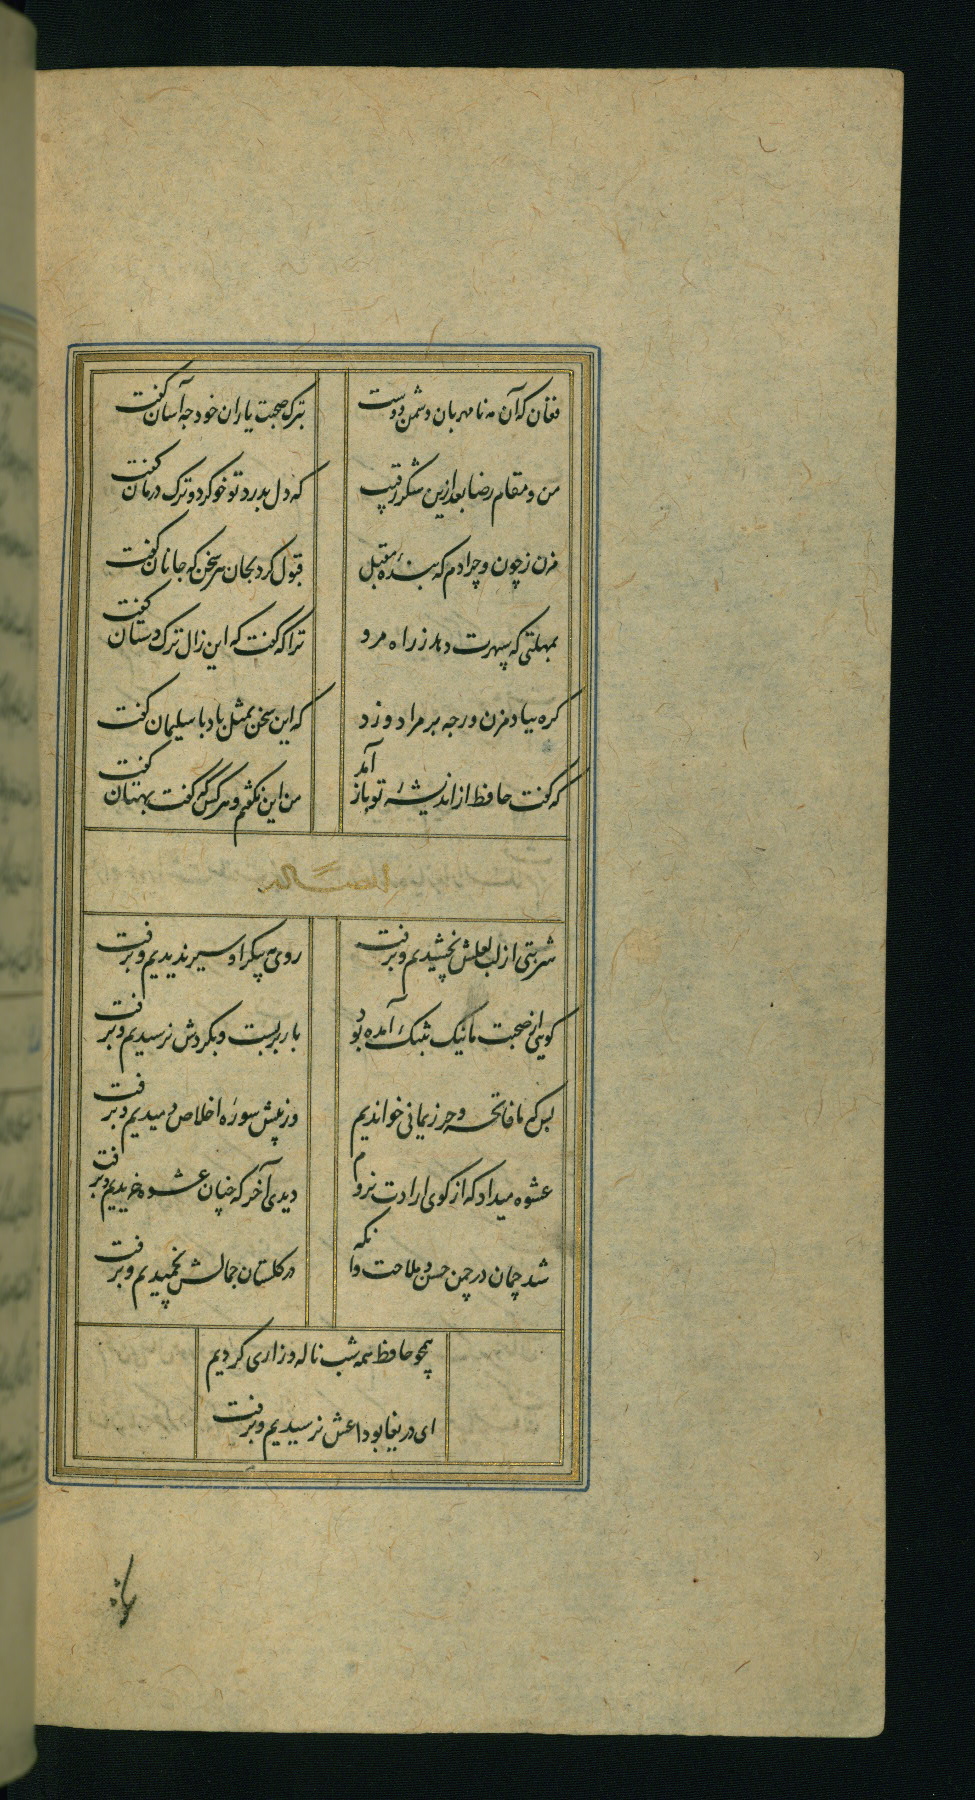 فغان که آن مه نامهربان دشمن دوست
بترک صحبت یاران خود چه آسان گفت
من و مقام رضا بعد ازین شکر رقیب
که دل بدرد تو خو کرد و ترک درمان گفت
مزن ز چون و چرا دم که بندهٔ مقبل
قبول کرد بجان هر سخن که جانان گفت
بمهلتی که سپهرت دهد ز راه مرو
ترا که گفت که این زال ترک دستان گفت
گره بباد مزن ورچه بر مراد وزد
که این سخن بمثل باد با سلیمان گفت
که گفت حافظ از اندیشهٔ تو باز آمد
من این نگفتم و هر کس که گفت بهتان گفت
شربتی از لب لعلش نچشیدیم و برفت
روی مه پیکر او سیر ندیدیم و برفت
گویی از صحبت ما نیک بتنگ آمده بود
بار بربست و بگردش نرسیدیم و برفت
بس که ما فاتحه و حرز یمانی خواندیم
وز پیش سورهٔ اخلاص دمیدیم و برفت
عشوه میداد که از کوی ارادت نروم
دیدی آخر که چنان عشوه خریدیم و برفت
شد چمان در چمن حسن و ملاحت وانکه
در گلستان جمالش نچمیدیم و برفت
همچو حافظ همه شب ناله و زاری کردیم
ای دریغا بوداعش نرسیدیم و برفت